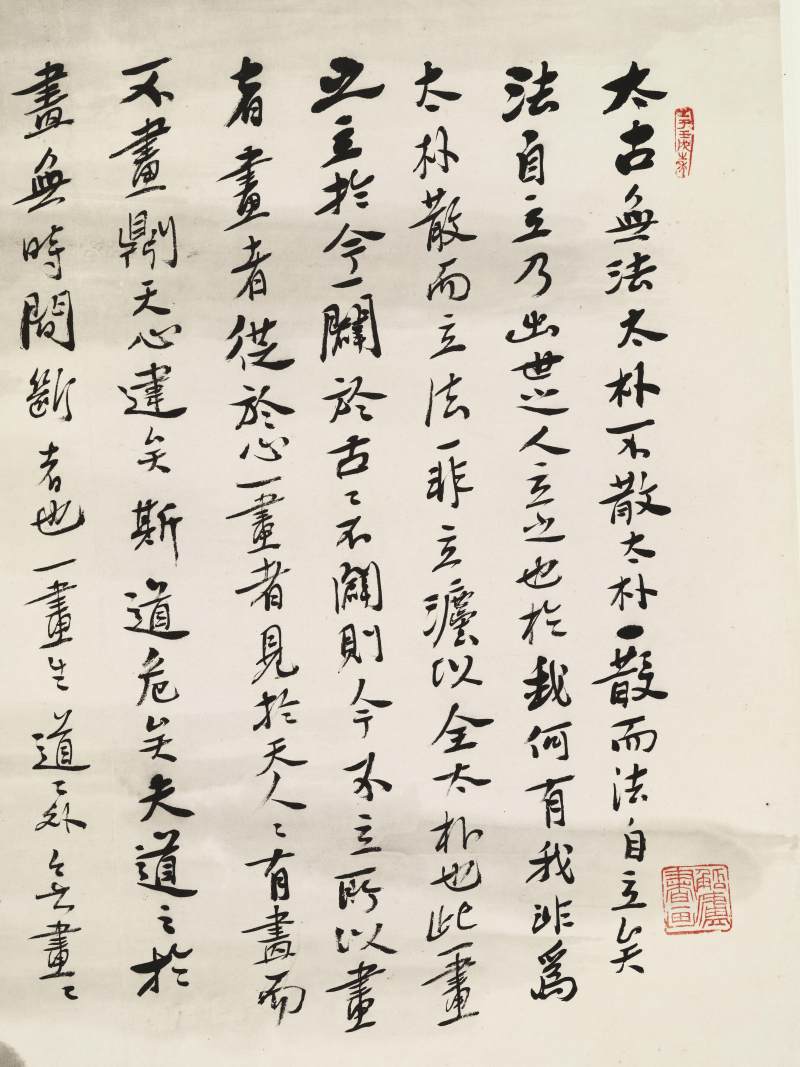 太古無法太朴不散太朴一散而法自立矣
法自立乃出世之人立之也於我何有我非為
太朴散而立法一非立灋以全太朴也此一畫
之立於今一闢於古〻不闢則今不立所以畫
者畫者從於心一畫者見於天人〻有畫而
不畫鼎天心違矣斯道危矣夫道之於
畫無時間斷者也一畫生道〻外無畫〻